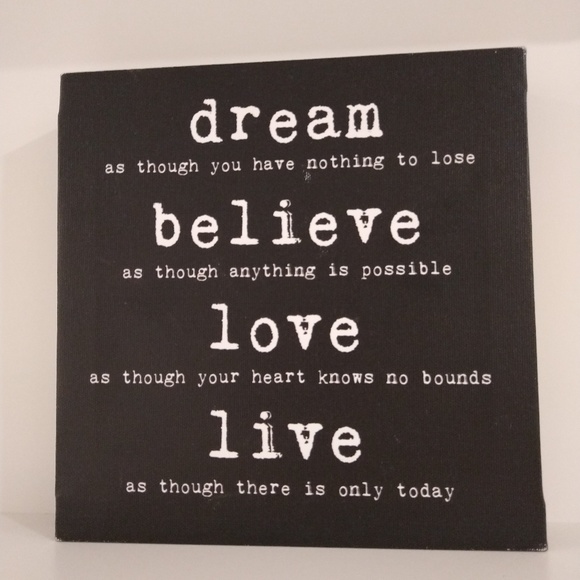 dream
as though you have nothing to lose
believe
as though anything is possible
love
as though your heart knows no bounds
live
as though there is only today